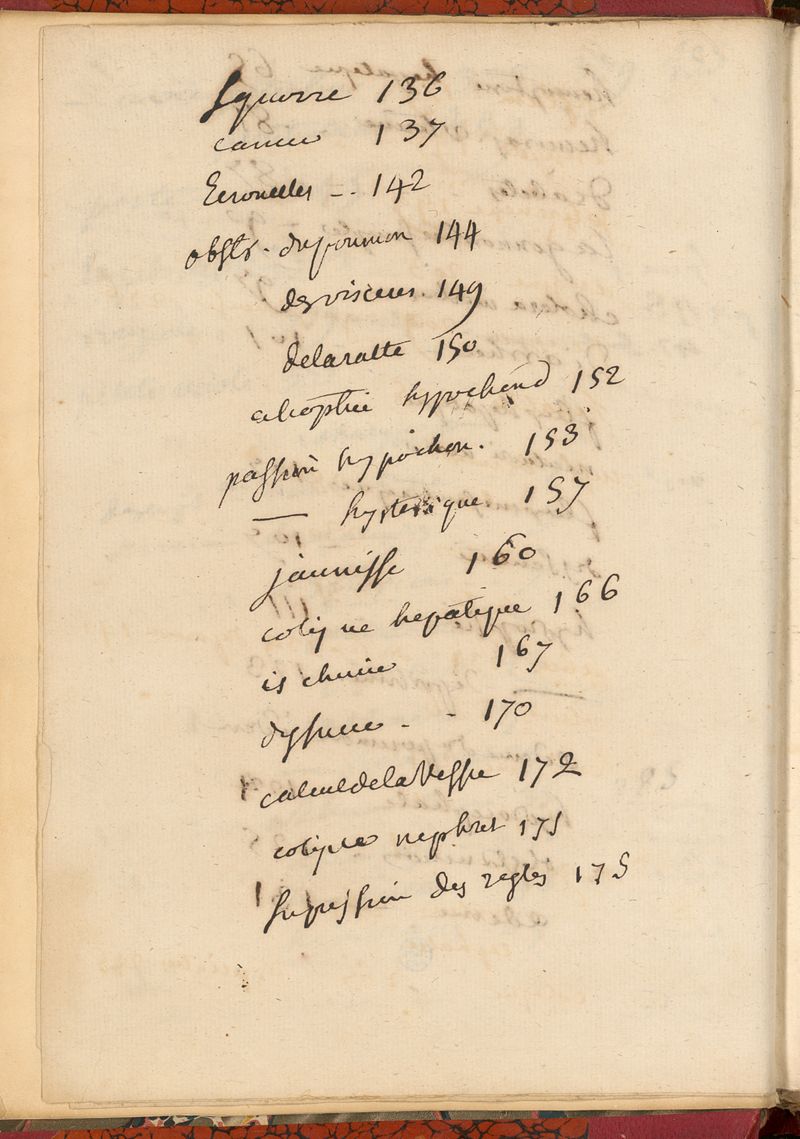 squirre 136
cancer 137
Ecrouelles -- 142
obstr. du poumon 144
des visceres. 149
de la ratte 150
hypochond 152
passion hypochon. 153
— hysterique 157
jaunisse 160
colique hepatique 166
ischurie 167
dysurie - - 170
calcul de la Vessie 172
colique nephret 175
supression des regles 175